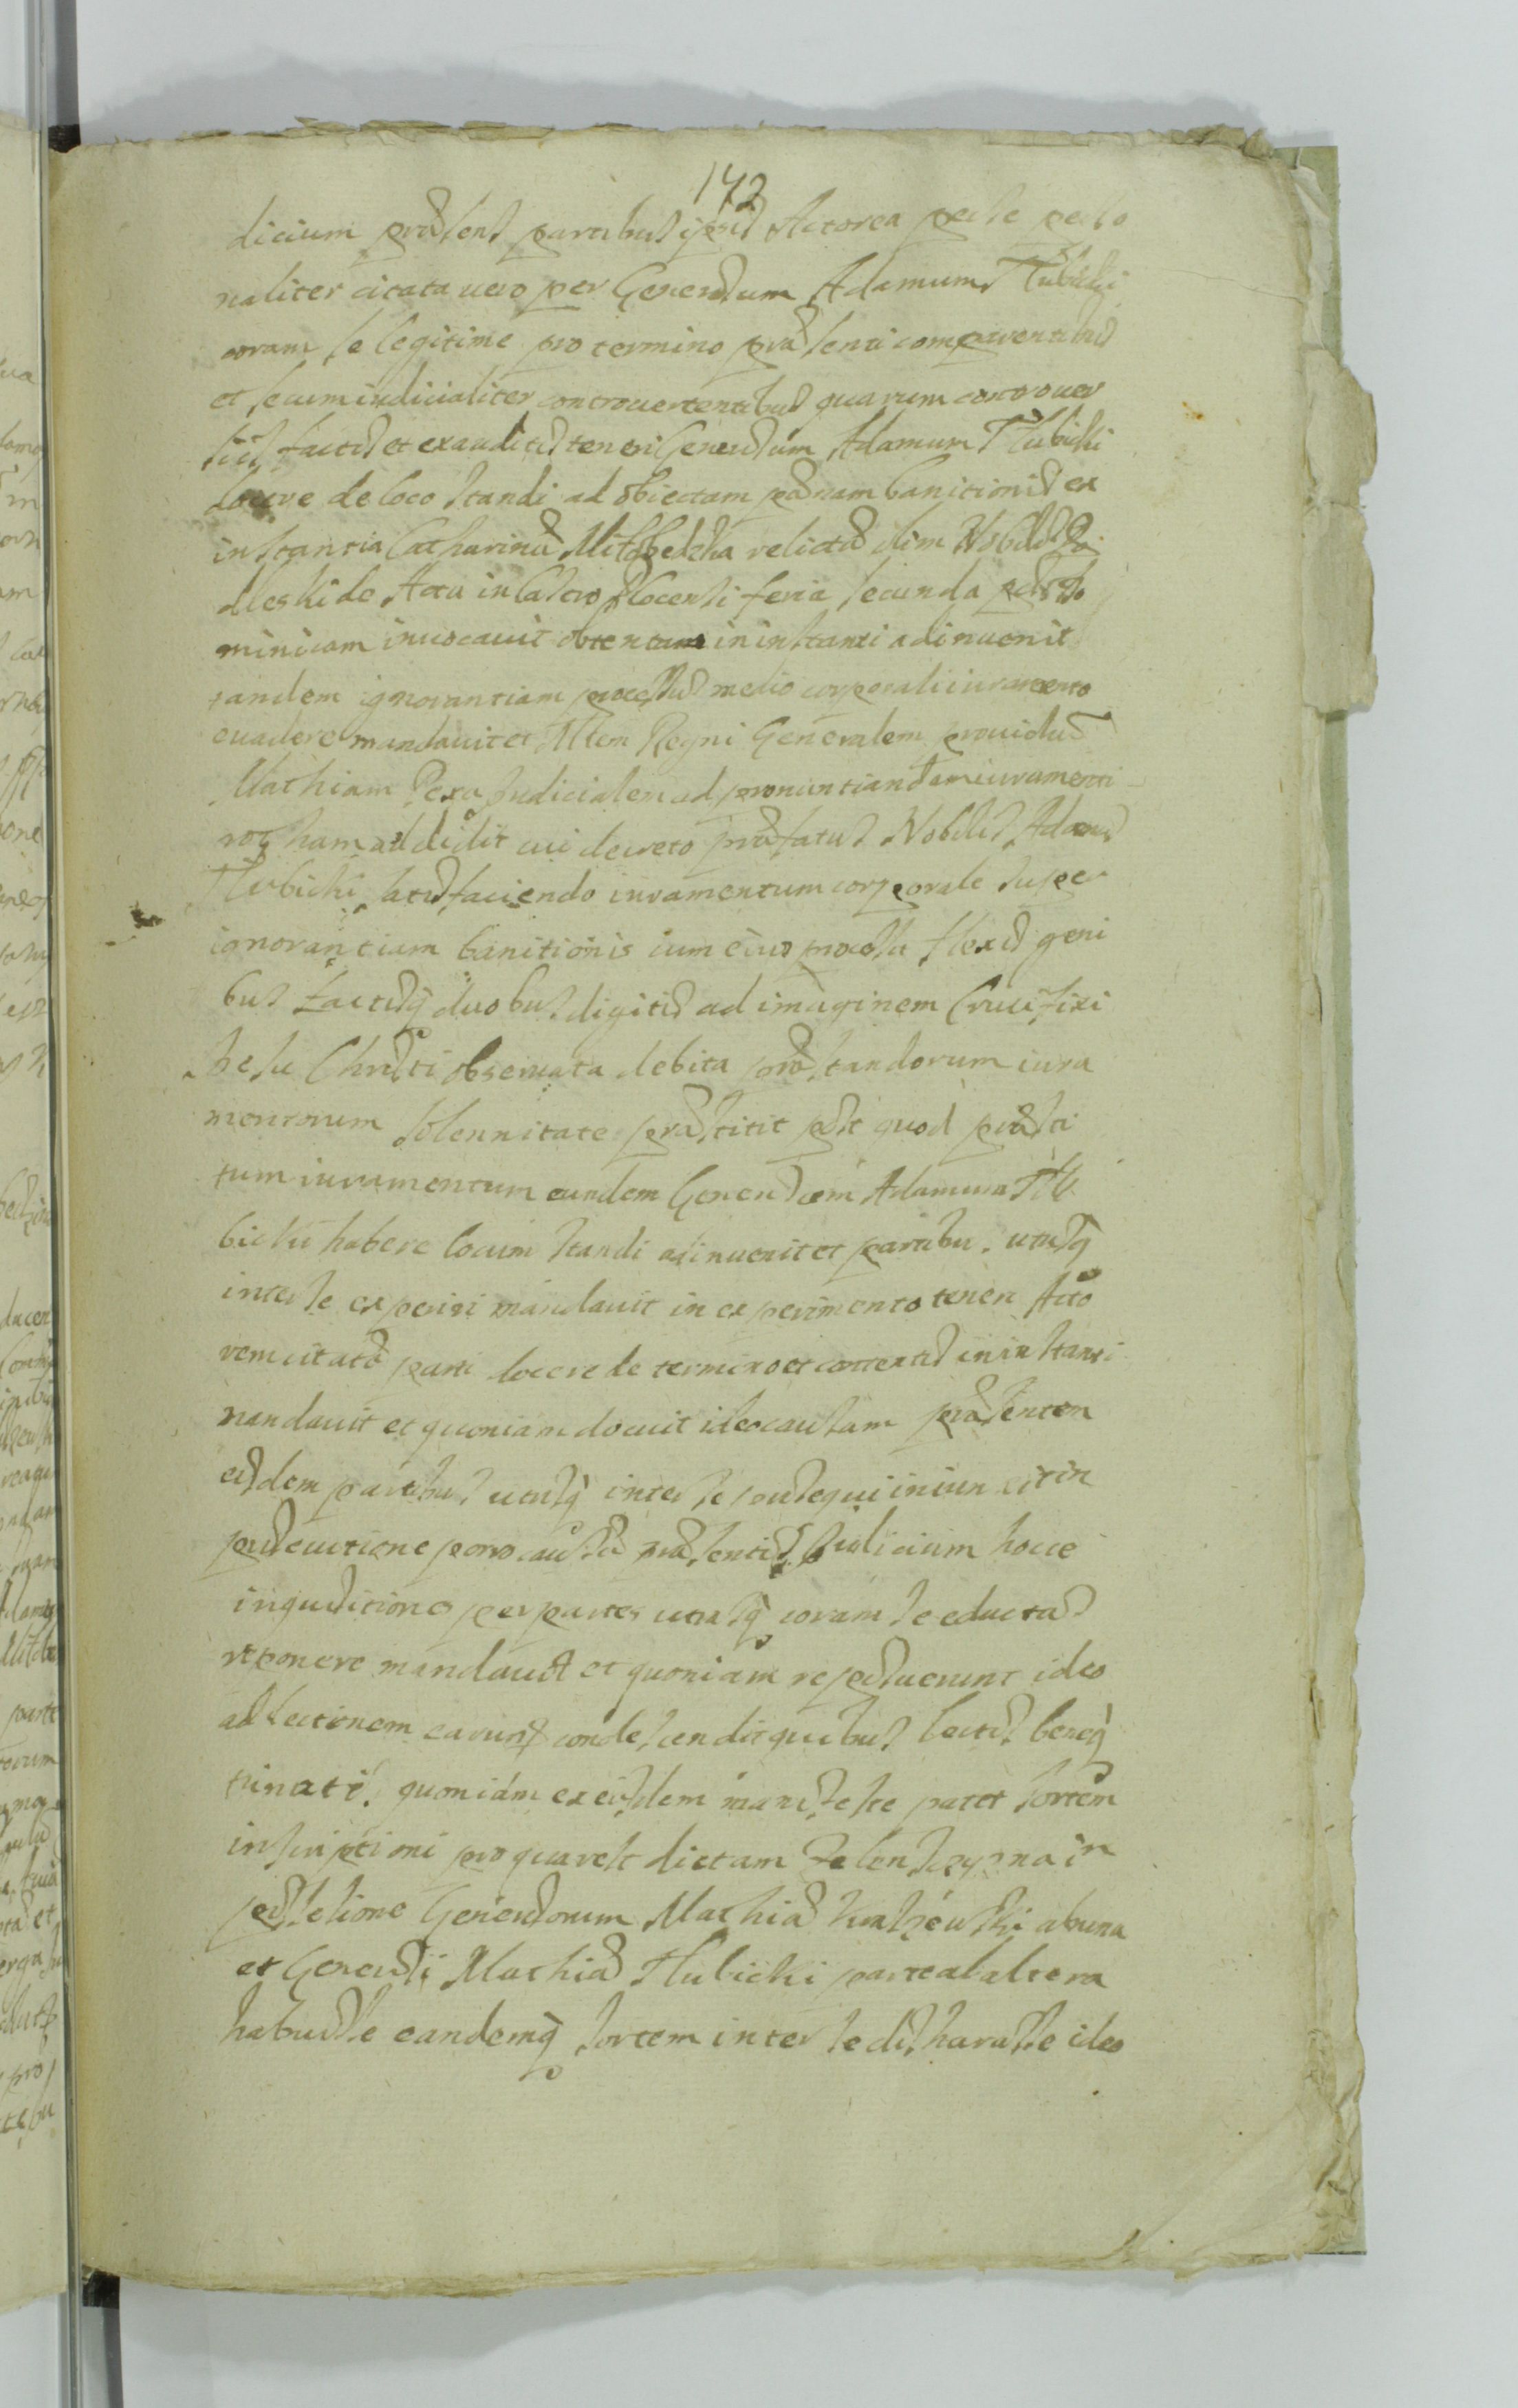 172
dicium præsens partibus ipsis Actorea perse perso
naliter citata vero per Generosum Adamum Tłubicki
coram se legitime pro termino præsenti comparentibus
et secum iudicialiter controvertentibus quarum controver
siis factis et exauditis teneri Generosum Adamum Tłubicki
docere de loco standi ad obiectam pænam banitionis ex
instantia Catharinæ relictæ olim Nobilis
de Actu in Castro Plocensi feria secunda post Do
minicam invocavit obtentam in instanti adinvenit
tandem ignorantiam processus medio corporali iuramento
evadere mandavit et Mtem Regni Generalem providus
Mathiam Judicialem ad pronuntiandam iuramenti
rotham addidit cui decreto præfatus Nobilis Adamus
Tłubicki satisfaciendo iuramentum corporale super
ignorantiam banitionis cum eius processu flexis geni
bus tactisq duobus digitis ad imaginem Crucifixi
Jesu Christi observata debita præstandorum iura
mentorum solennitate præstitit post quod præsti
tum iuramentum eundem Generosum Adamum Tłu
bicki habere locum standi adinvenit et partibus utrisq
inter se experiri mandavit in experimento teneri Acto
rem citatæ parti docere de termino et contentis in instanti
mandavit et quoniam docuit ideo causam præsentem
eisdem partibus utrisq inter se prosequi iniunxit in
prosecutione porro causæ præsentis Judicium hocce
inquisitiones per partes utrasq coram se eductas
reponere mandavit et quoniam reposuerunt ideo
ad lectionem earum condescendit quibus lectis beneq
ruinatis quoniam ex eisdem manifeste patet sortem
inscriptioni pro quarest dictam Zelensczyzna in
possesione Generosorum Mathiæ ab una
et Generosi Mathiæ Tłubicki parte ab altera
habuisse eandemq sortem inter se disharasse ideo